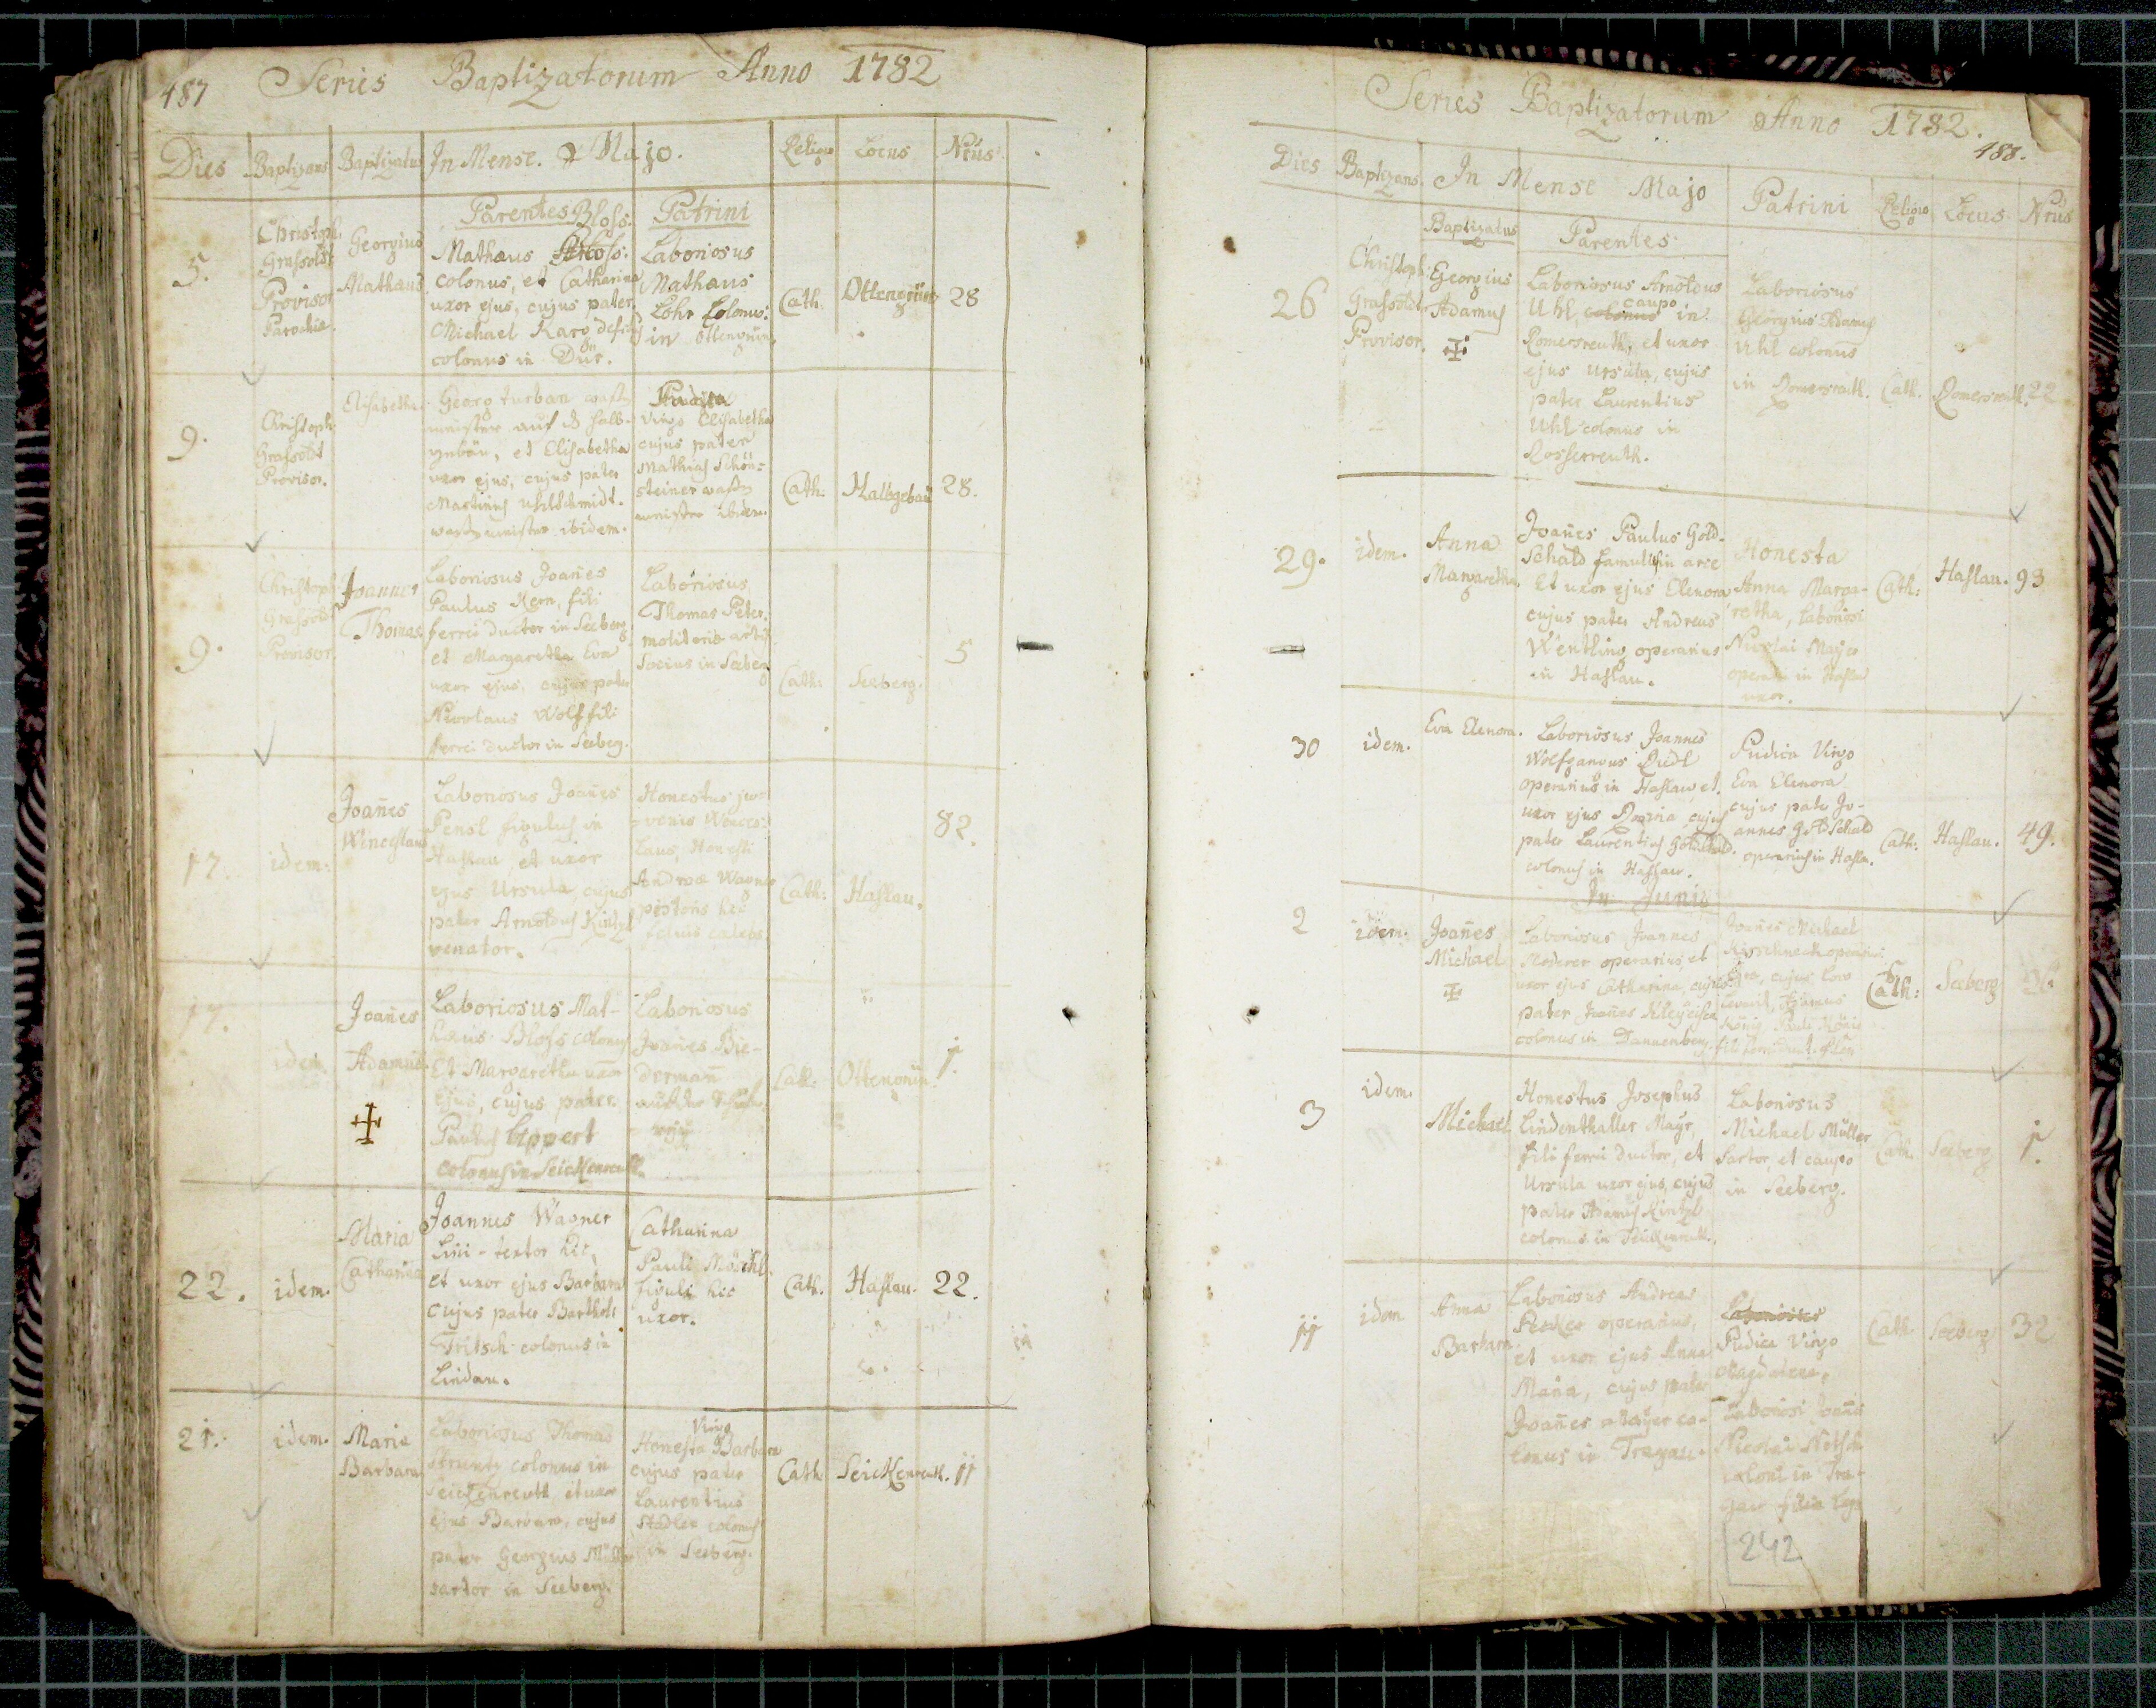 487 Series Baptizatorum Anno 1782
Dies Baptizans Baptizatus In Mense Majo. Religio Locus Nrus
Parentes Bloss: Patrini
5.
Christoph.
Grassoldt
Provisor
Parochiæ.
Georgius
Mathæus
Mathæus
colonus, et Catharina
uxor ejus, cujus pater
Michael Karg
colonus in Dür.
Laboriosus
Mathæus
Lohr Colonus
in Ottengrün.
Cath. Ottengrün 28
9.
Christoph
Grassoldt
Provisor.
Elisabetha
Georg turban
meister auf
et Elisabetha
uxor ejus, cujus pater
Martinus
ibidem.
Pudica
Virgo Elisabetha
cujus pater
Mathias Schön=
steiner
ibidem.
Cath. Halbgebäu 28.
9.
Christoph
Grassoldt
Provisor.
Joannes
Thomas
Laboriosus Joañes
Paulus Kern, fili
ferrei ductor in Seeberg
et Margaretha Eva
uxor ejus, cujus pater
Nicolaus Wolf fili
ferrei ductor in Seeberg.
Laboriosus
Thomas Peter,
molitoris artis
Socius in Seeberg
Cath: Seeberg. 5
17. idem.
Joañes
Winceslaus
Laboriosus Joañes
Pensl figulus in
Haslau, et uxor
ejus Ursula, cujus
pater Arnoldus Kintzl
venator.
Honestus ju=
=venis Wences=
laus, Honesti
Andreæ Wagner
pistoris hic
filius cælebs
Cath: Haslau. 82.
17. idem.
Joañes
Adamus
Laboriosus Mat-
hæus Bloss colonus
Et Margaretha uxor
ejus, cujus pater
Paulus Lippert
colonus in Seickenreuth.
Laboriosus
Joañes Bie-
dermañ
Cath: Ottengrün 1.
22. idem.
Maria
Catharina
Joannes Wagner
Lini-textor hic,
et uxor ejus Barbara
cujus pater Barthol:
Tritsch colonus in
Lindau.
Catharina
Pauli
figuli hic
uxor.
Cath. Haslau. 22.
21. idem.
Maria
Barbara
Laboriosus Thomas
colonus in
Seickenreuth et uxor
ejus Barbara, cujus
pater Georgius
sartor in Seeberg.
Virgo
Honesta Barbara
cujus pater
Laurentius
Stadler colonus
in Seeberg.
Cath Seickenreuth. 11
Series Baptizatorum Anno 1782.
488.
Dies Baptizans. In Mense Majo Patrini Religio Locus Nrus
Baptizatus Parentes
26
Christoph:
Grassoldt
Provisor.
Georgius
Adamus
Laboriosus Arnoldus
Uhl, caupo in
Romersreuth, et uxor
ejus Ursula, cujus
pater Laurentius
Uhl colonus in
Rosserreuth.
Laboriosus
Georgius Adamus
Uhl colonus
in Romersreuth.
Cath. Romersreuth. 22
29. idem.
Anna
Margaretha.
Joañes Paulus Gold-
schald famulus in arce
Et uxor ejus Elenora
cujus pater Andreas
Wentling operarius
in Haslau.
Honesta
Anna Marga-
retha, Laboriosi
Nicolai Mayer
operarii in Haslau
uxor.
Cath: Haslau. 93
30 idem.
Eva Elenora.
Laboriosus Joannes
Wolfgangus Riedl
operarius in Haslau, et
uxor ejus Maria cujus
pater Laurentius Goldschald.
colonus in Haslau.
Pudica Virgo
Eva Elenora
cujus pater Jo-
annes Goldschald
operarius in Hasla.
Cath: Haslau. 49.
In Junio
2 idem.
Joañes
Michael
Laboriosus Joannes
Moderer operarius, et
uxor ejus Catharina, cujus
pater Joañes
colonus in Tannenberg
Joañes Michael
Hirschneck operarius
cujus loco
levavit, Adamus
König Pauli König
Cath: Seeberg
3 idem.
Michael
Honestus Josephus
Lindenthaller Mayr,
fili ferrei ductor, et
Ursula uxor ejus, cujus
pater Adamus Kintzl
colonus in Seickenreuth.
Laboriosus
Michael Müller
Sartor, et caupo
in Seeberg.
Cath. Seeberg 1.
11 idem
Anna
Barbara
Laboriosus Andreas
operarius,
et uxor ejus Anna
Maria, cujus pater
Joañes Mayer co-
lonus in Tragau.
Pudica Virgo
Magdalena,
Laboriosi Joañis
Nicolai
coloni in Tra-
gau filia
Cath Seeberg 32
242